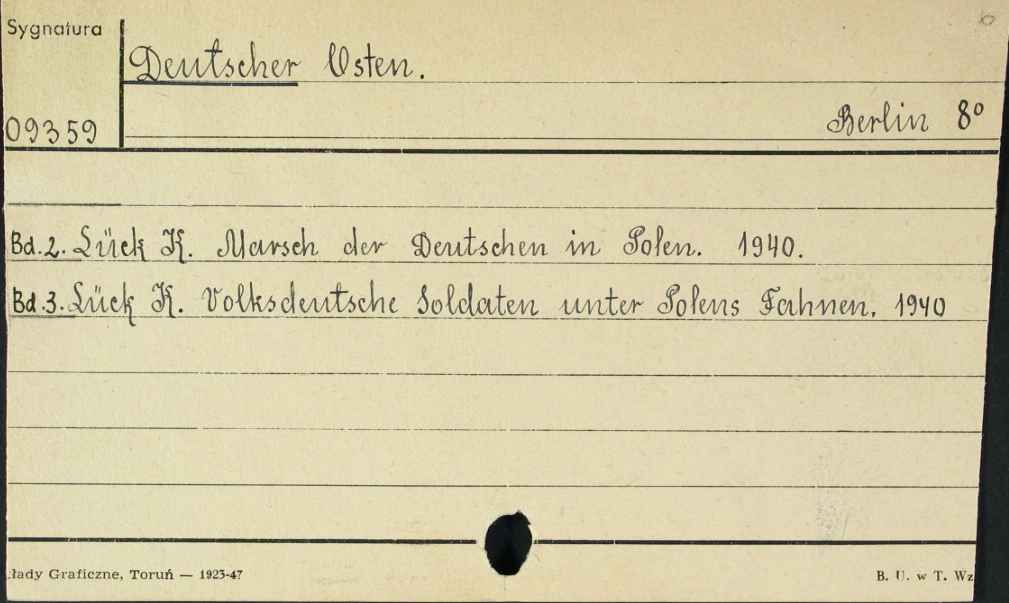 Sygnatura
Deutscher Osten.
09359
Berlin 8°
Bd.2. Lück K. Marsch der Deutschen in Polen. 1940.
Bd.3. Lück K. Volksdeutsche Soldaten unter Polens Fahnen. 1940
łady Graficzne, Toruń — 1923-47
B. U. w T. Wz